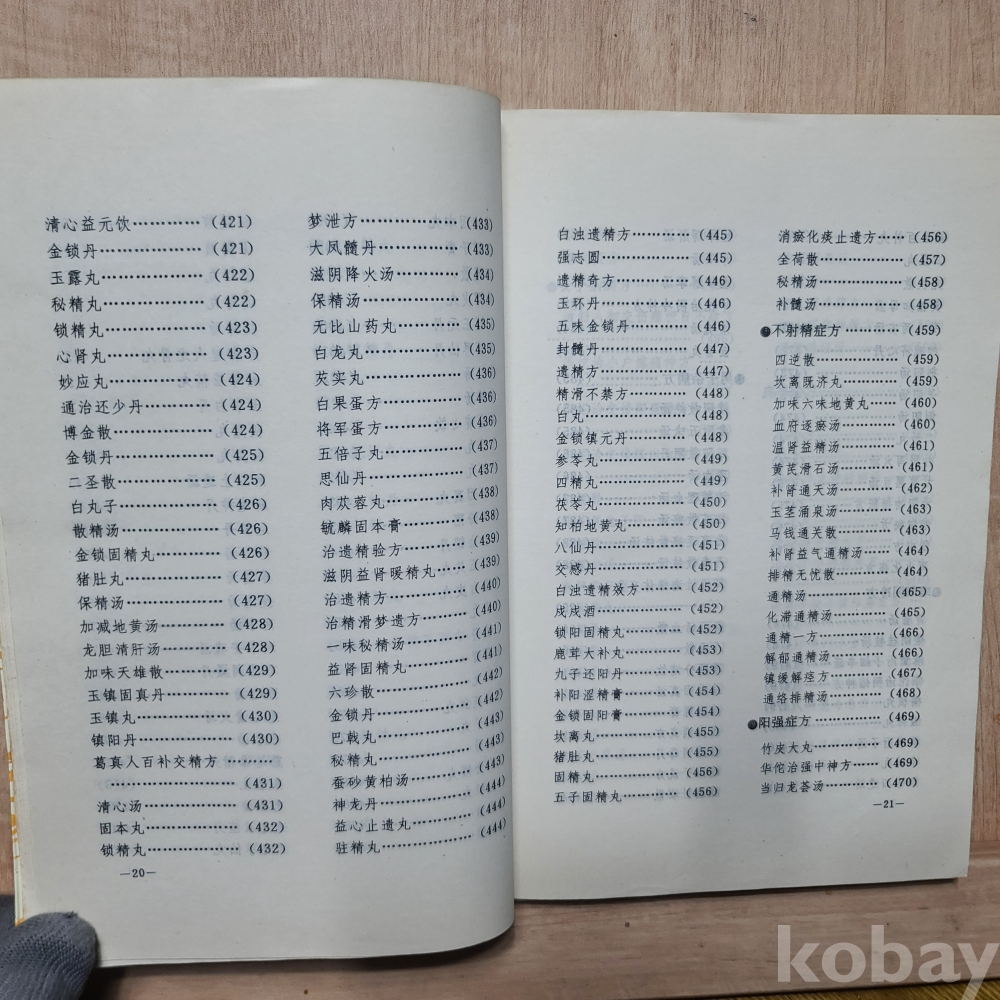 清心益元饮…………（421）
金锁丹………………（421）
玉露丸………………（422）
秘精丸………………（422）
锁精丸………………（423）
心肾丸………………（423）
妙应丸………………（424）
通治还少丹…………（424）
博金散………………（424）
金锁丹………………（425）
二圣散………………（425）
白丸子………………（426）
散精汤………………（426）
金锁固精丸…………（426）
猪肚丸………………（427）
保精汤………………（427）
加减地黄汤…………（428）
龙胆清肝汤…………（428）
加味天雄散…………（429）
玉镇固真丹…………（429）
玉镇丸………………（430）
镇阳丹………………（430）
葛真人百补交精方……
………………（431）
清心汤………………（431）
固本丸………………（432）
锁精丸………………（432）
—20—
梦泄方………………（433）
大凤髓丹……………（433）
滋阴降火汤…………（434）
保精汤………………（434）
无比山药丸…………（435）
白龙丸………………（435）
芡实丸………………（436）
白果蛋方……………（436）
将军蛋方……………（436）
五倍子丸……………（437）
思仙丹………………（437）
肉苁蓉丸……………（438）
毓麟固本膏…………（438）
治遗精验方…………（439）
滋阴益肾暖精丸……（439）
治遗精方……………（440）
治精滑梦遗方………（440）
一味秘精汤…………（441）
益肾固精丸…………（441）
六珍散………………（442）
金锁丹………………（442）
巴戟丸………………（443）
秘精丸………………（443）
蚕砂黄柏汤…………（444）
神龙丹………………（444）
益心止遗丸…………（444）
驻精丸………………（444）
白浊遗精方…………（445）
强志圆………………（445）
遗精奇方……………（446）
玉环丹………………（446）
五味金锁丹…………（446）
封髓丹………………（447）
遗精方………………（447）
精滑不禁方…………（448）
白丸…………………（448）
金锁镇元丹…………（448）
参苓丸………………（449）
四精丸………………（449）
茯苓丸………………（450）
知柏地黄丸…………（450）
八仙丹………………（451）
交感丹………………（451）
白浊遗精效方………（452）
戍戍酒………………（452）
锁阳固精丸…………（452）
鹿茸大补丸…………（453）
九子还阳丹…………（453）
补阳涩精膏…………（454）
金锁固阳膏…………（454）
坎离丸………………（455）
猪肚丸………………（455）
固精丸………………（456）
五子固精丸…………（456）
消瘀化痰止遗方……（456）
全荷散………………（457）
秘精汤………………（458）
补髓汤………………（458）
●不射精症方…………（459）
四逆散………………（459）
坎离既济丸…………（459）
加味六味地黄丸……（460）
血府逐瘀汤…………（460）
温肾益精汤…………（461）
黄芪滑石汤…………（461）
补肾通天汤…………（462）
玉茎涌泉汤…………（463）
马钱通关散…………（463）
补肾益气通精汤……（464）
排精无忧散…………（464）
通精汤………………（465）
化滞通精汤…………（465）
通精一方……………（466）
解郁通精汤…………（466）
镇缓解痉方…………（467）
通络排精汤…………（468）
●阳强症方……………（469）
竹炭大丸……………（469）
华佗治强中神方……（469）
当归龙荟汤…………（470）
—21—
kobay